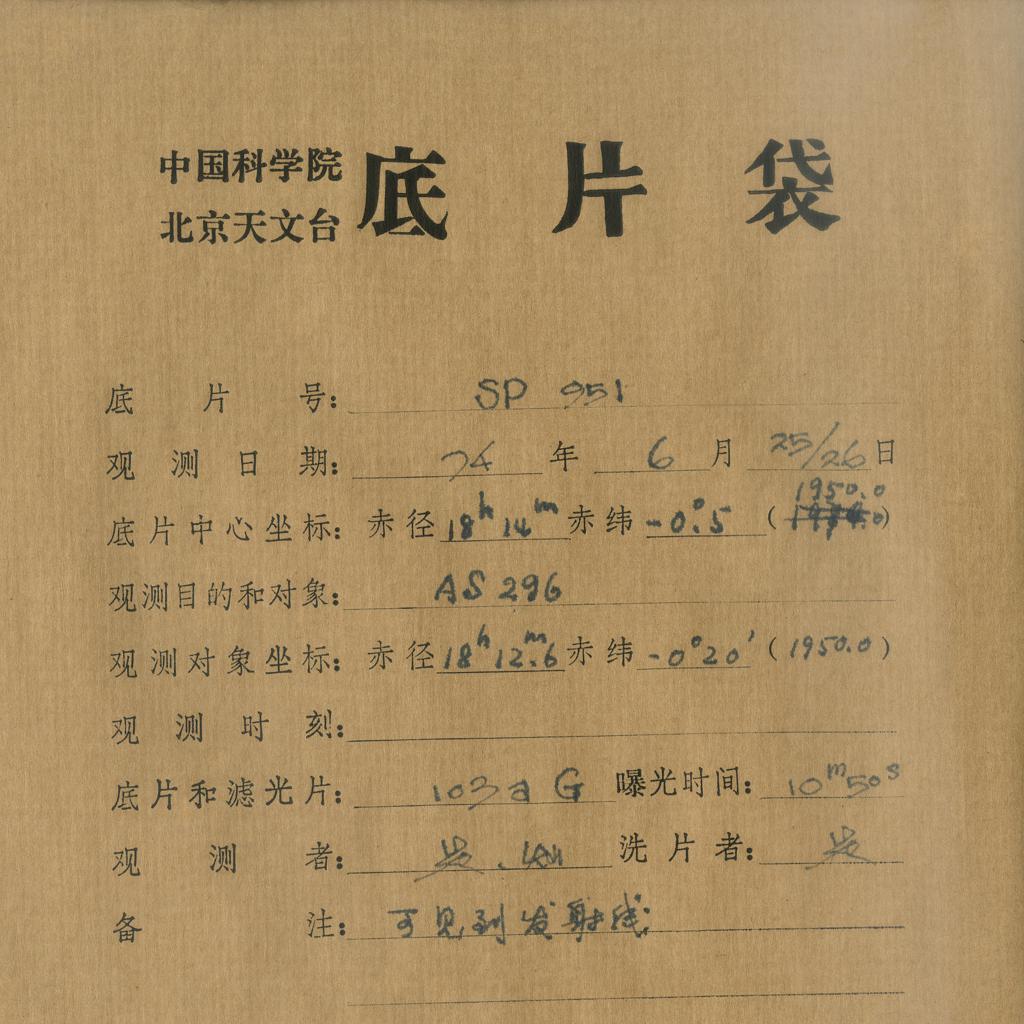 中国科学院
北京天文台
底片袋
底片号: SP 951
观测日期: 74年 6月 25/26日
1950.0
底片中心坐标: 赤径 18h 14m 赤纬 -0°.5 ( )
观测目的和对象: AS 296
观测对象坐标: 赤径 18h 12m.6 赤纬 -0°20′ (1950.0)
观测时刻:
底片和滤光片: 103a G 曝光时间: 10m50s
观测者: 洗片者:
备注: 可见到发射线